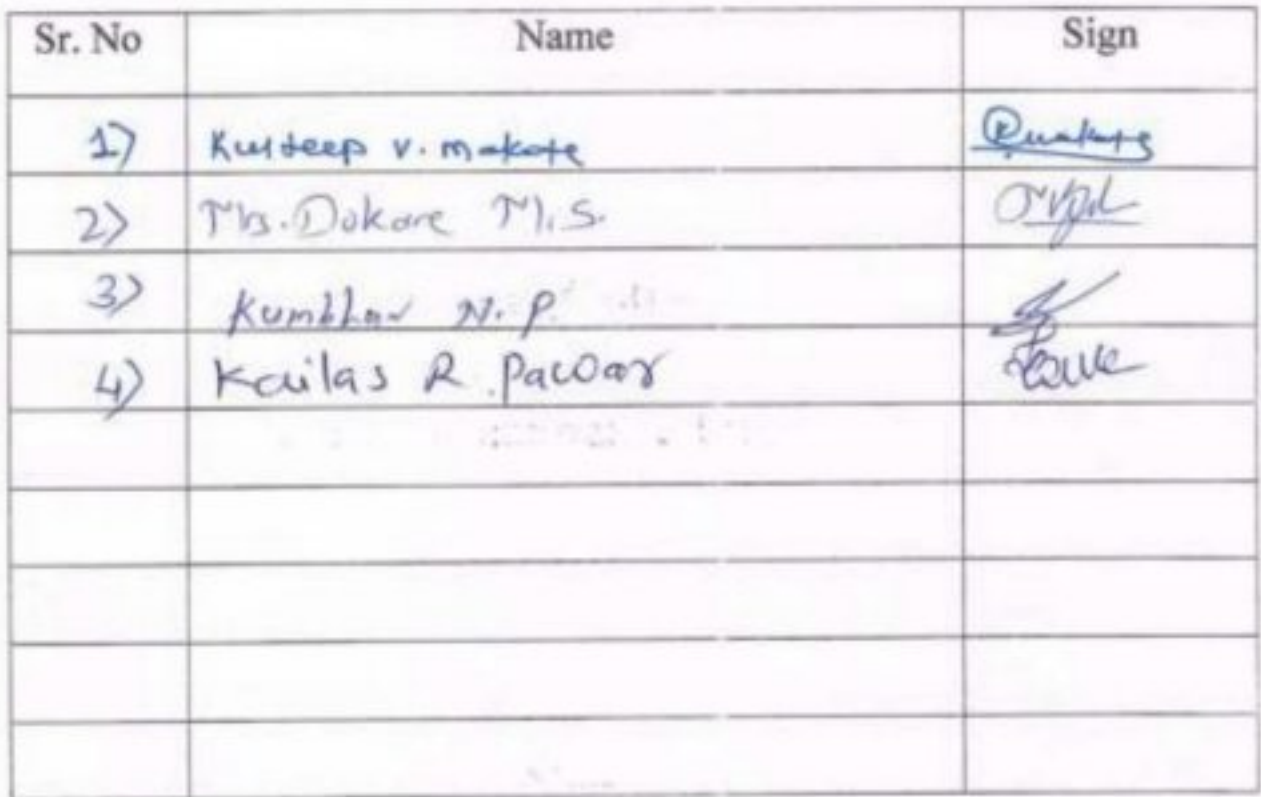 Sr. No Name Sign
1) Kuldeep v. makote
2) Mrs. Dokare M.S.
3) Kumbhar N. P.
4) Kailas R. Pawar